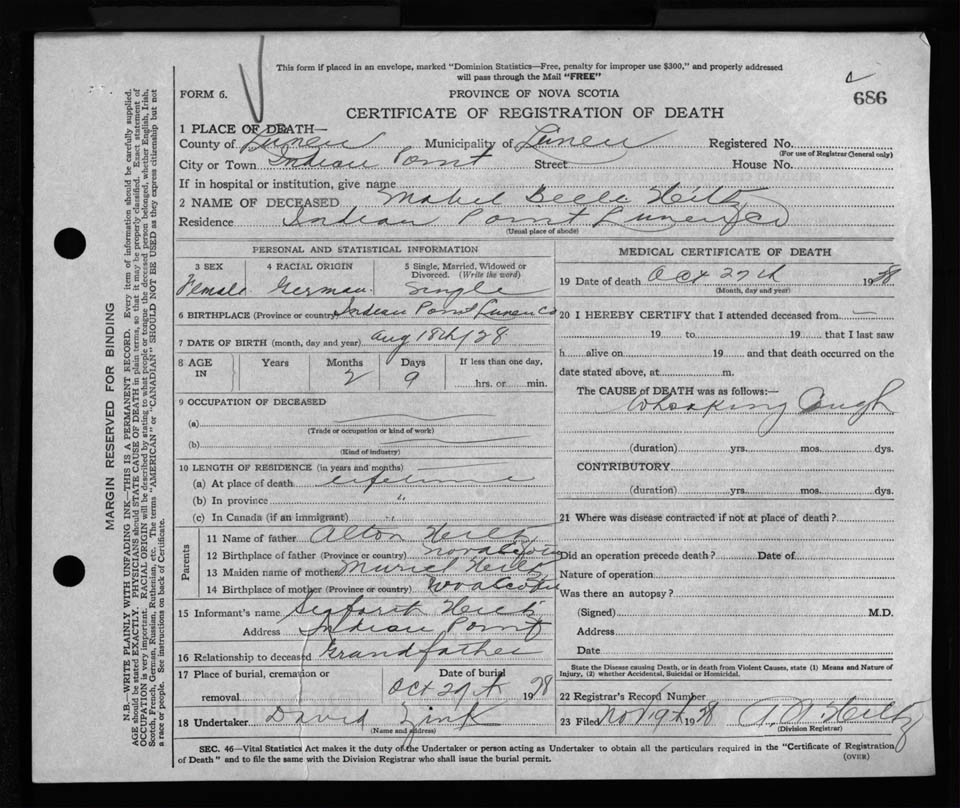 This form if placed in an envelope, marked "Dominion Statistics—Free, penalty for improper use $300," and properly addressed
will pass through the Mail "FREE"
FORM 6.
PROVINCE OF NOVA SCOTIA
686
CERTIFICATE OF REGISTRATION OF DEATH
1 PLACE OF DEATH—
County of Lunen Municipality of Lunen Registered No.
(For use of Registrar General only)
City or Town Indian Point Street House No.
If in hospital or institution, give name
2 NAME OF DECEASED Mabel Belle Heiltz
Residence Indian Point Lunen Co
(Usual place of abode)
PERSONAL AND STATISTICAL INFORMATION
3 SEX 4 RACIAL ORIGIN 5 Single, Married, Widowed or
Divorced. (Write the word)
Female German. Single
6 BIRTHPLACE (Province or country) Indian Point Lunen Co
7 DATE OF BIRTH (month, day and year) Aug 18th/28
8 AGE IN Years Months Days If less than one day,
2 9 hrs. or min.
9 OCCUPATION OF DECEASED
(a)
(Trade or occupation or kind of work)
(b)
(Kind of industry)
10 LENGTH OF RESIDENCE (in years and months)
(a) At place of death lifetime
(b) In province "
(c) In Canada (if an immigrant) "
Parents
11 Name of father Alton Heiltz
12 Birthplace of father (Province or country) Novascotia
13 Maiden name of mother Muriel Heiltz
14 Birthplace of mother (Province or country) Novascotia
15 Informant's name Heiltz
Address Indian Point
16 Relationship to deceased Grandfather
17 Place of burial, cremation or Date of burial
removal Oct 29th 1928
18 Undertaker David Zink
(Name and address)
MEDICAL CERTIFICATE OF DEATH
19 Date of death Oct 27th 1928
(Month, day and year)
20 I HEREBY CERTIFY that I attended deceased from —
19 to 19 that I last saw
h alive on 19 and that death occurred on the
date stated above, at m.
The CAUSE of DEATH was as follows:—
Whooking Cough
(duration) yrs. mos. dys.
CONTRIBUTORY
(duration) yrs. mos. dys.
21 Where was disease contracted if not at place of death?
Did an operation precede death? Date of
Nature of operation
Was there an autopsy?
(Signed) M.D.
Address
Date
State the Disease causing Death, or in death from Violent Causes, state (1) Means and Nature of
Injury, (2) whether Accidental, Suicidal or Homicidal.
22 Registrar's Record Number
23 Filed Nov 19th 1928 Heiltz
(Division Registrar)
SEC. 46—Vital Statistics Act makes it the duty of the Undertaker or person acting as Undertaker to obtain all the particulars required in the "Certificate of Registration
of Death" and to file the same with the Division Registrar who shall issue the burial permit.
(OVER)
MARGIN RESERVED FOR BINDING
N.B.—WRITE PLAINLY WITH UNFADING INK—THIS IS A PERMANENT RECORD. Every item of information should be carefully supplied.
AGE should be stated EXACTLY. PHYSICIANS should STATE CAUSE OF DEATH in plain terms, so that it may be properly classified. Exact statement of
OCCUPATION is very important. RACIAL ORIGIN will be described by stating to what people or tongue the deceased person belonged, whether English, Irish,
Scotch, French, German, Russian, Ruthenian, etc. The terms "AMERICAN" or "CANADIAN" SHOULD NOT BE USED as they express citizenship but not
a race or people. See instructions on back of Certificate.